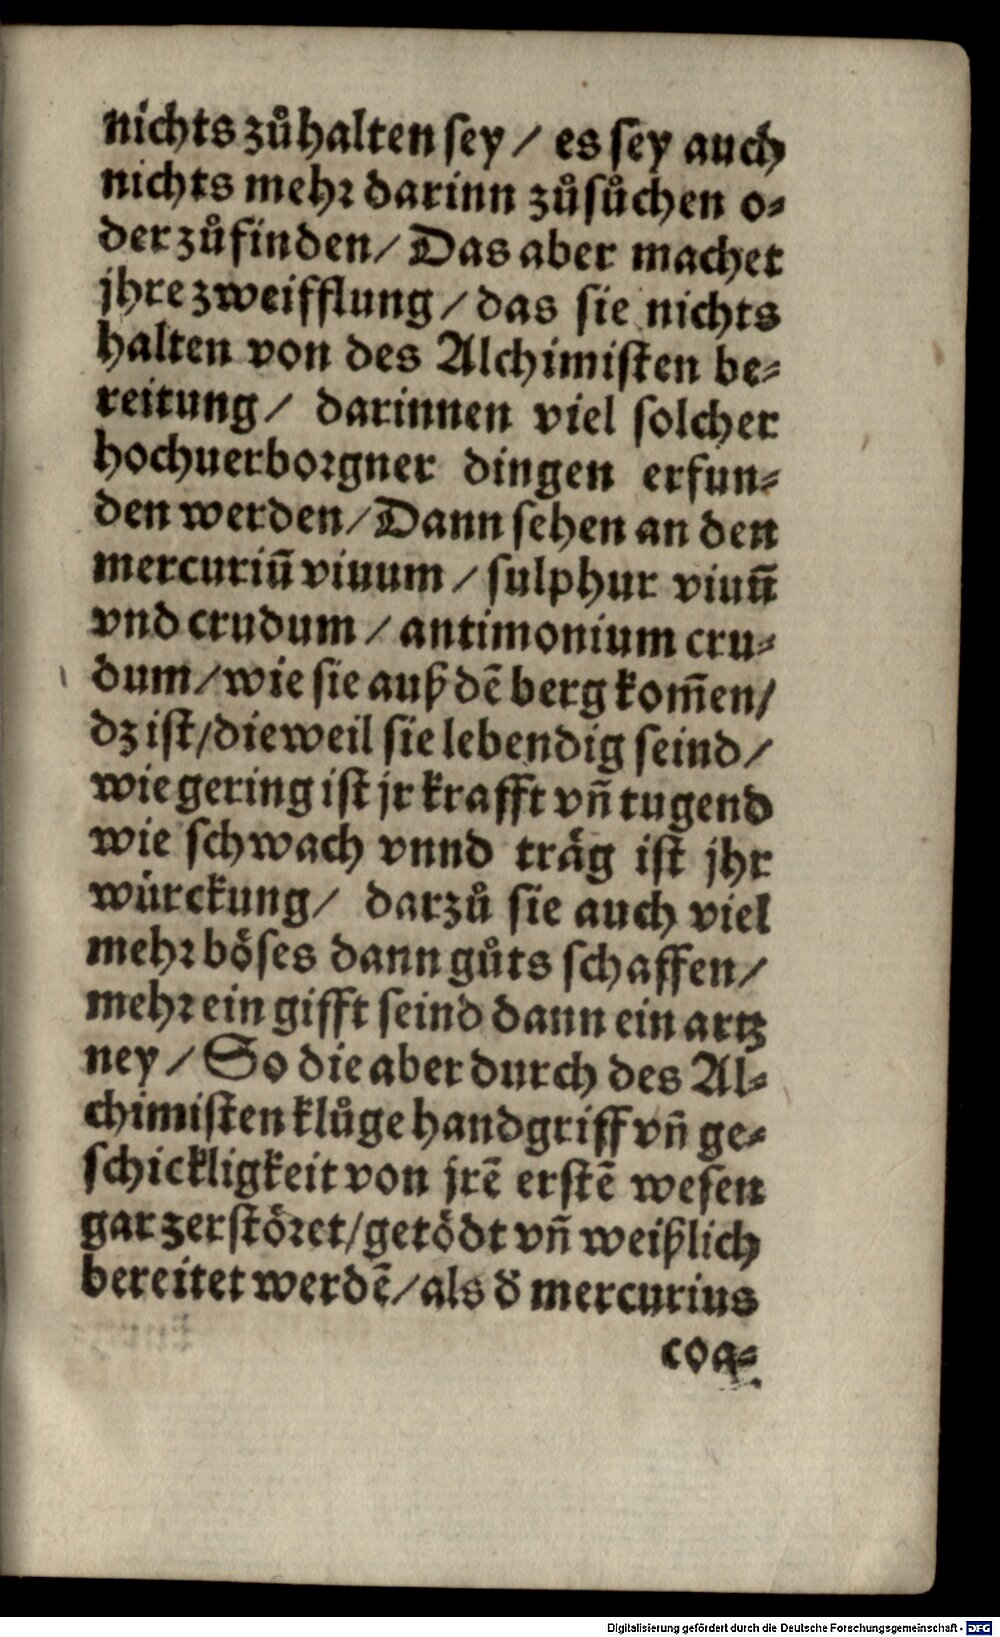 nichts zůhalten sey / es sey auch
nichts mehr darinn zůsůchen o-
der zůfinden / Das aber machet
jhre zweifflung / das sie nichts
halten von des Alchimisten be-
reitung / darinnen viel solcher
hochuerborgner dingen erfun-
den werden / Dann sehen an den
mercuriū viuum / sulphur viuū
vnd crudum / antimonium cru-
dum / wie sie auß dē berg kom̄en /
dz ist / dieweil sie lebendig seind /
wie gering ist jr krafft vn̄ tugend
wie schwach vnnd träg ist jhr
würckung / darzů sie auch viel
mehr böses dann gůts schaffen /
mehr ein gifft seind dann ein artz
ney / So die aber durch des Al-
chimisten klůge handgriff vn̄ ge-
schickligkeit von jrē erstē wesen
gar zerstöret / getödt vn̄ weißlich
bereitet werdē / als d̄ mercurius
coa-
Digitalisierung gefördert durch die Deutsche Forschungsgemeinschaft - DFG